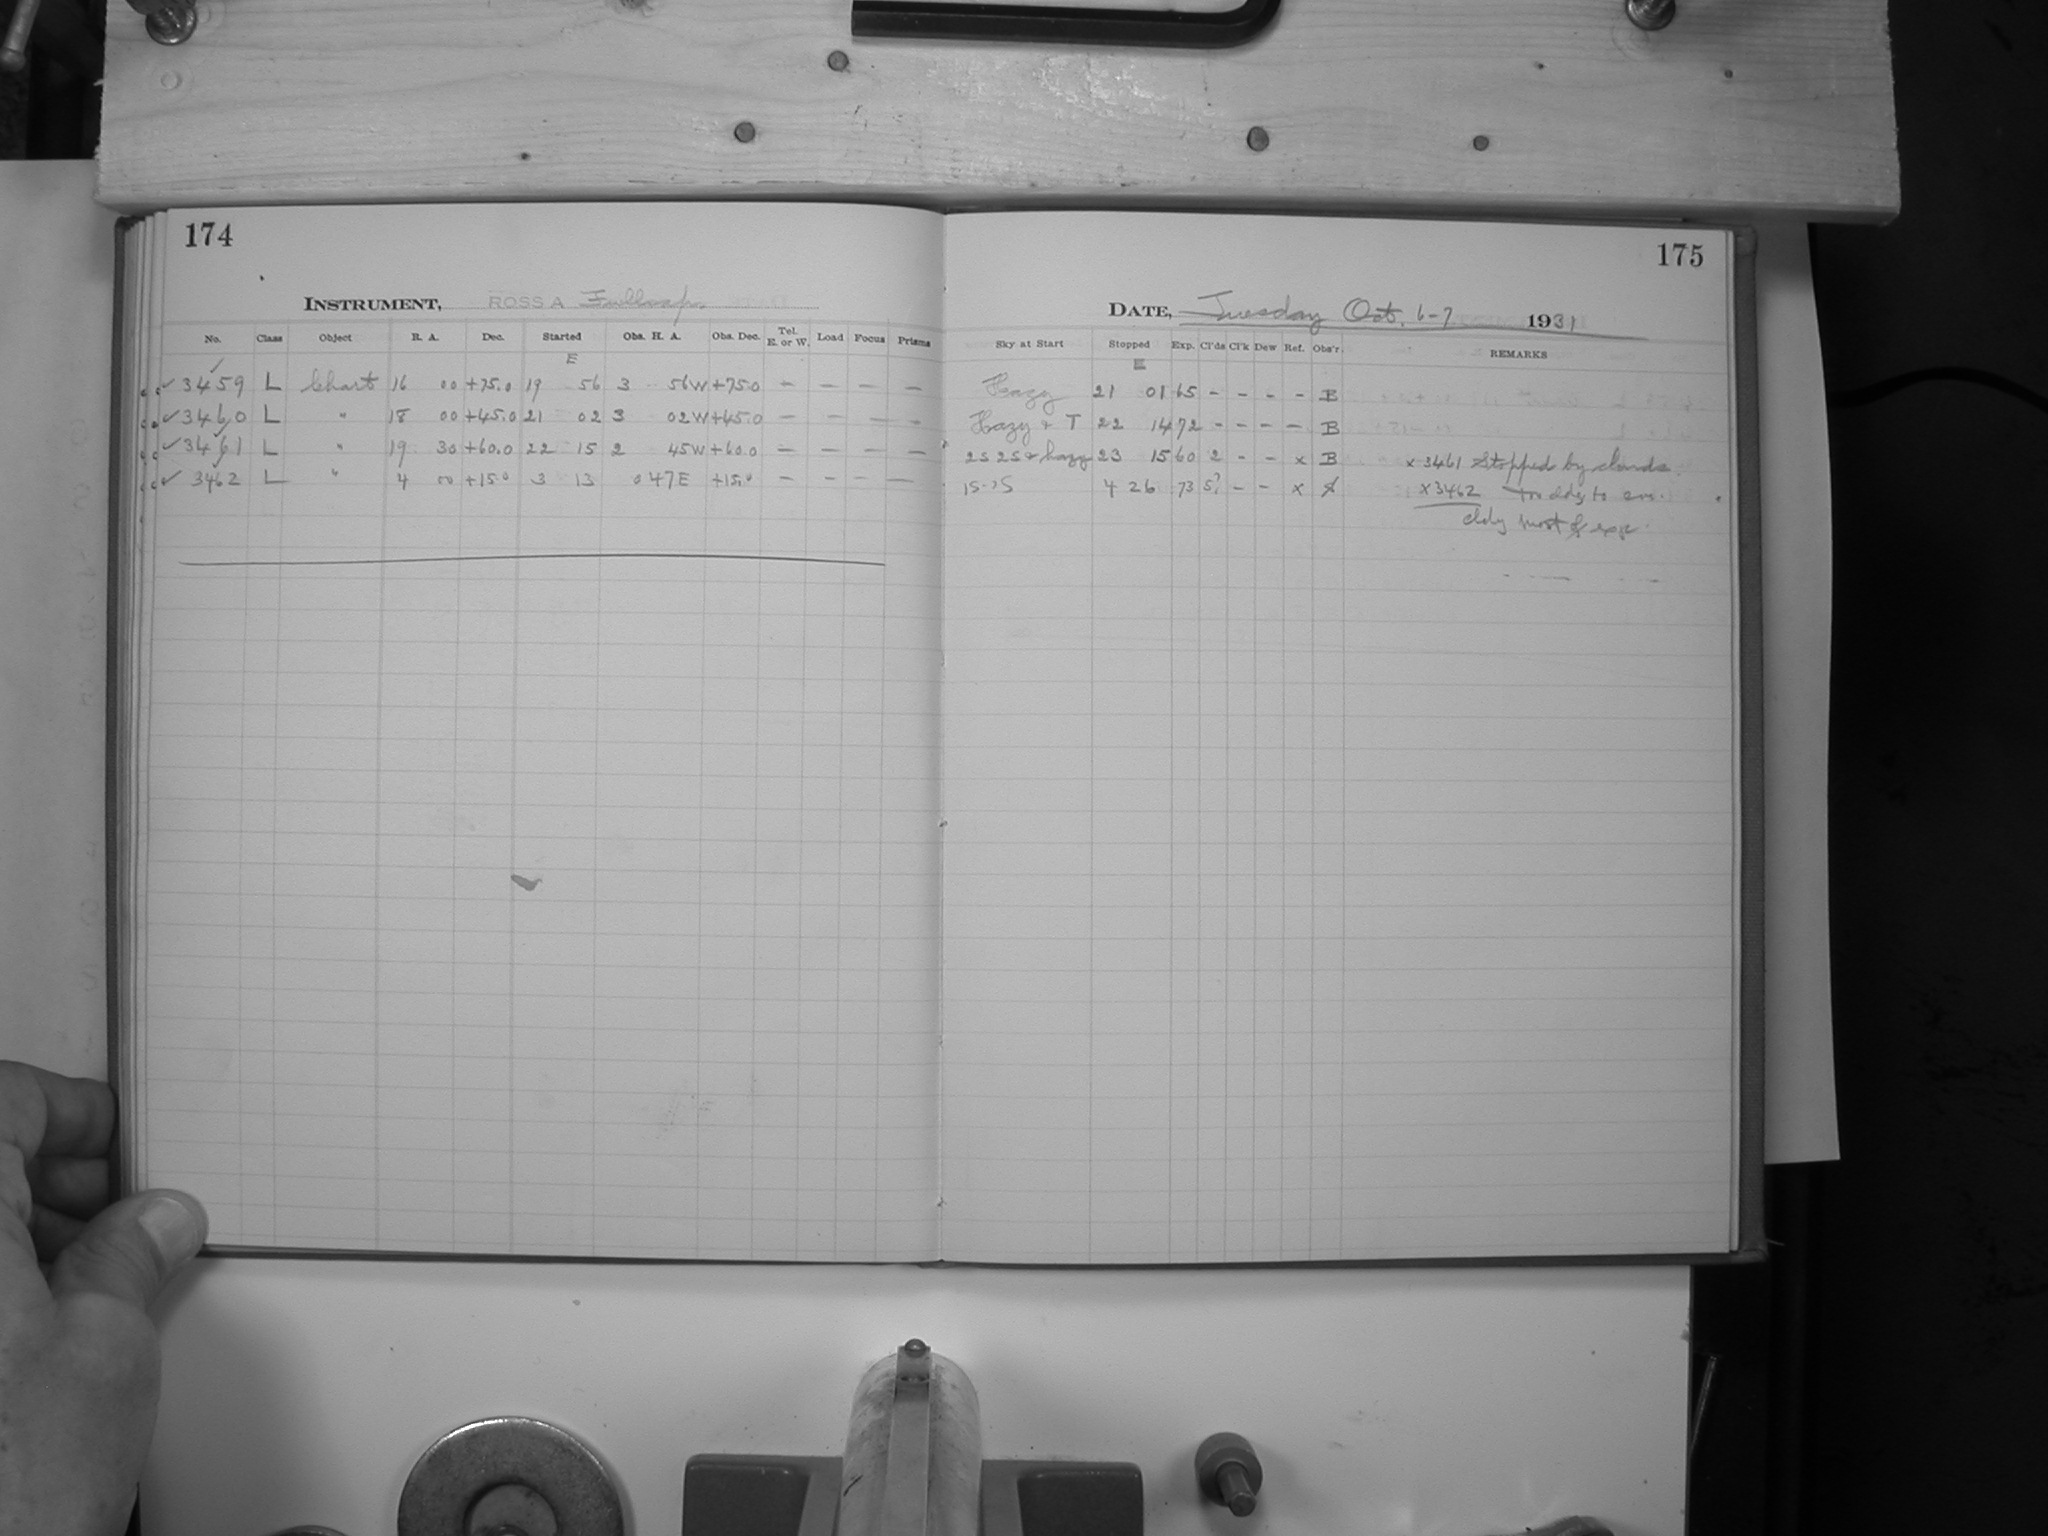 174
INSTRUMENT, ROSS A
No. Class Object R. A. Dec. Started Obs. H. A. Obs. Dec. Tel. E. or W. Load Focus Prisms
E
✓ 3459 L Chart 16 00 +75.0 19 56 3 56W +75.0 – – – –
✓ 3460 L " 18 00 +45.0 21 02 3 02W +45.0 – – – –
✓ 3461 L " 19 30 +60.0 22 15 2 45W +60.0 – – – –
✓ 3462 L " 4 00 +15.0 3 13 0 47E +15.0 – – – –
175
DATE, Tuesday Oct. 6-7 1931
Sky at Start Stopped Exp. Cl'ds Cl'k Dew Ref. Obs'r. REMARKS
E
Hazy 21 01 65 – – – – B
Hazy + T 22 14 72 – – – – B
2S 2S + hazy 23 15 60 2 – – x B x 3461 Stopped by clouds.
4 26 73 5? – – x x 3462
cldy most of exp.